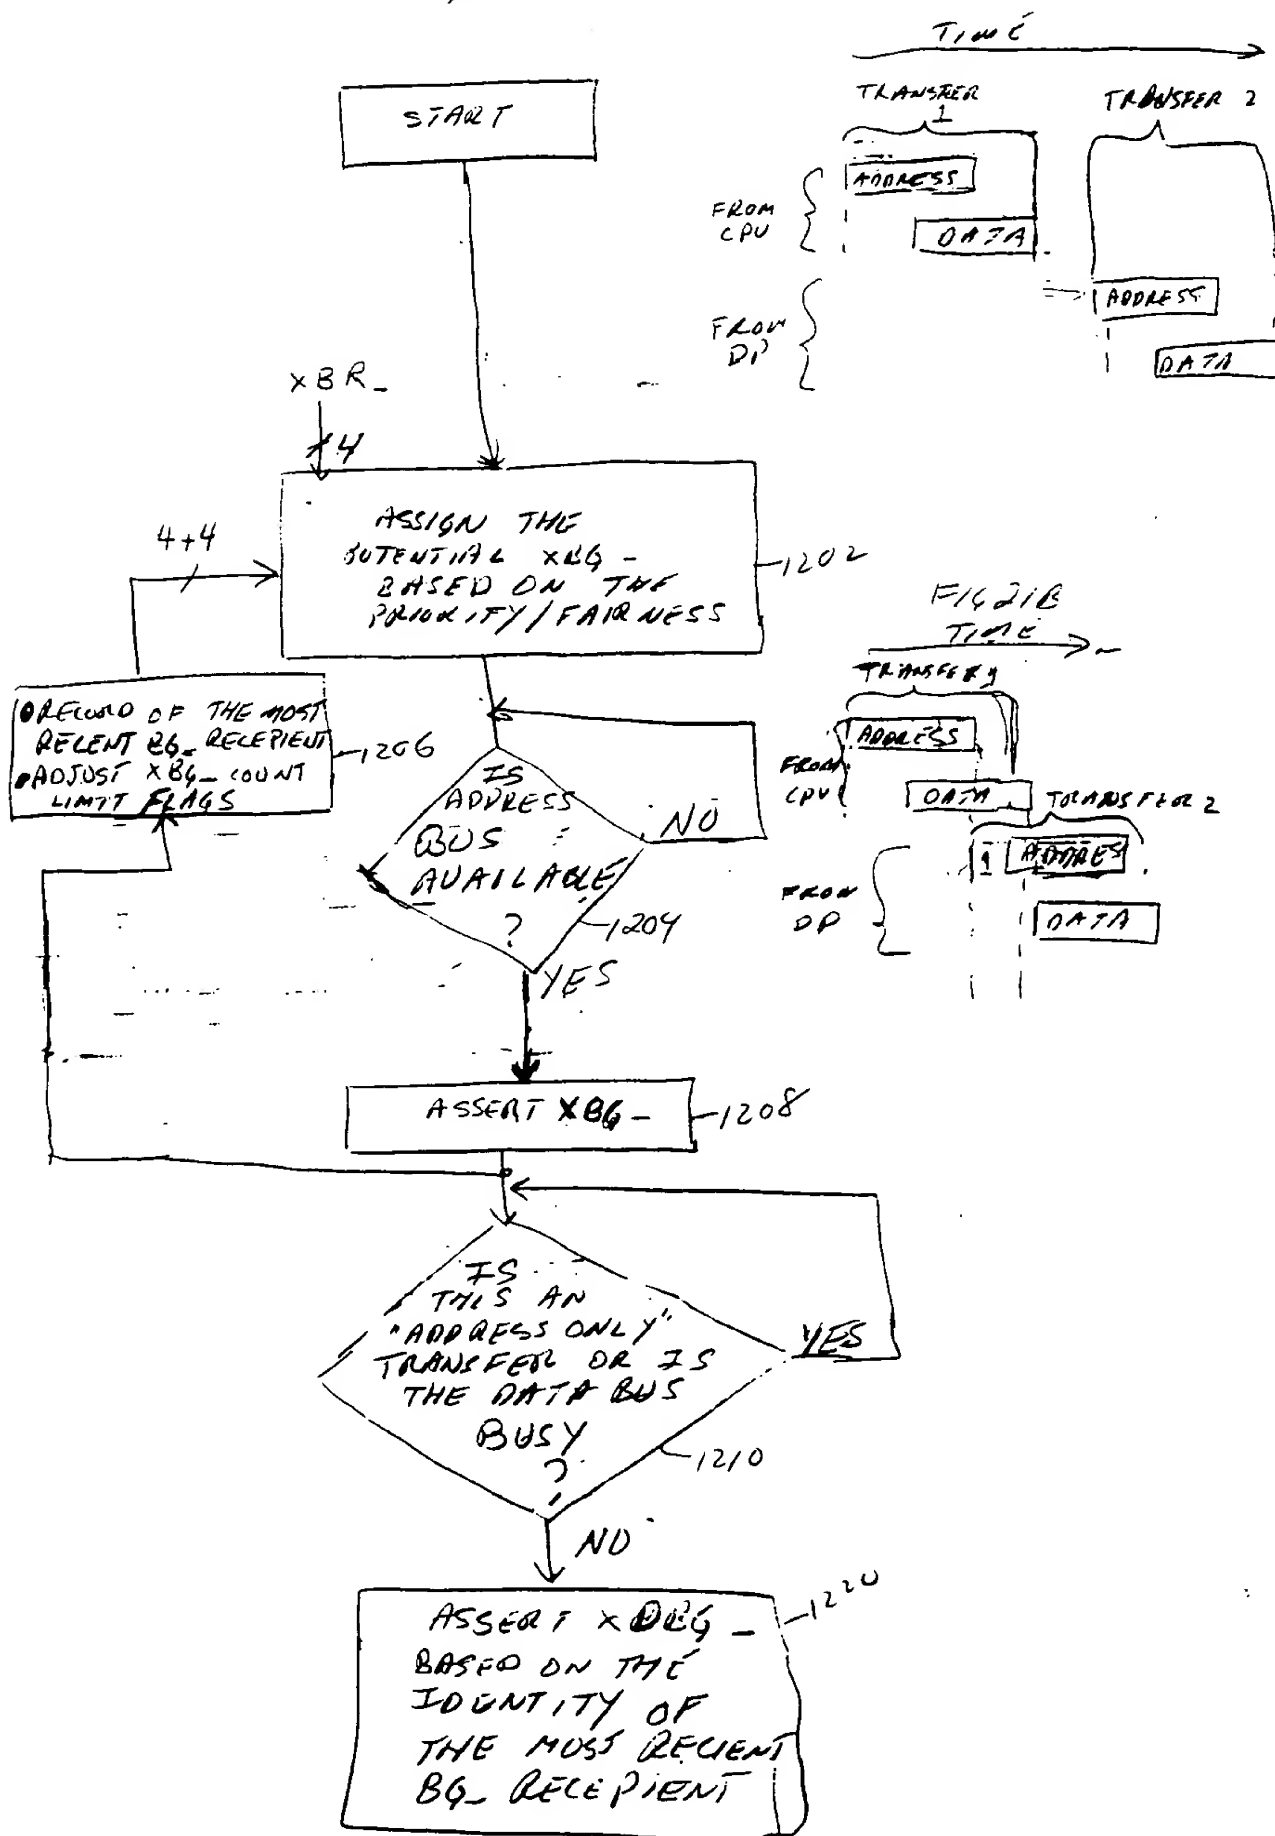 START
XBR_
4
4+4
ASSIGN THE
POTENTIAL XBG_
BASED ON THE
PRIORITY/FAIRNESS
1202
RECORD OF THE MOST
RECENT BG_ RECEPIENT
ADJUST XBG_ COUNT
LIMIT FLAGS
1206
IS
ADDRESS
BUS
AVAILABLE
?
NO
1204
YES
ASSERT XBG_
1208
IS
THIS AN
"ADDRESS ONLY"
TRANSFER OR IS
THE DATA BUS
BUSY
?
YES
1210
NO
ASSERT XDBG_
BASED ON THE
IDENTITY OF
THE MOST RECIENT
BG_ RECEPIENT
1220
TIME
TRANSFER
1
TRANSFER 2
FROM
CPU
ADDRESS
DATA
FROM
DP
ADDRESS
DATA
FIG 21B
TIME
TRANSFER 1
FROM
CPU
ADDRESS
DATA
TRANSFER 2
FROM
DP
1
ADDRES
DATA